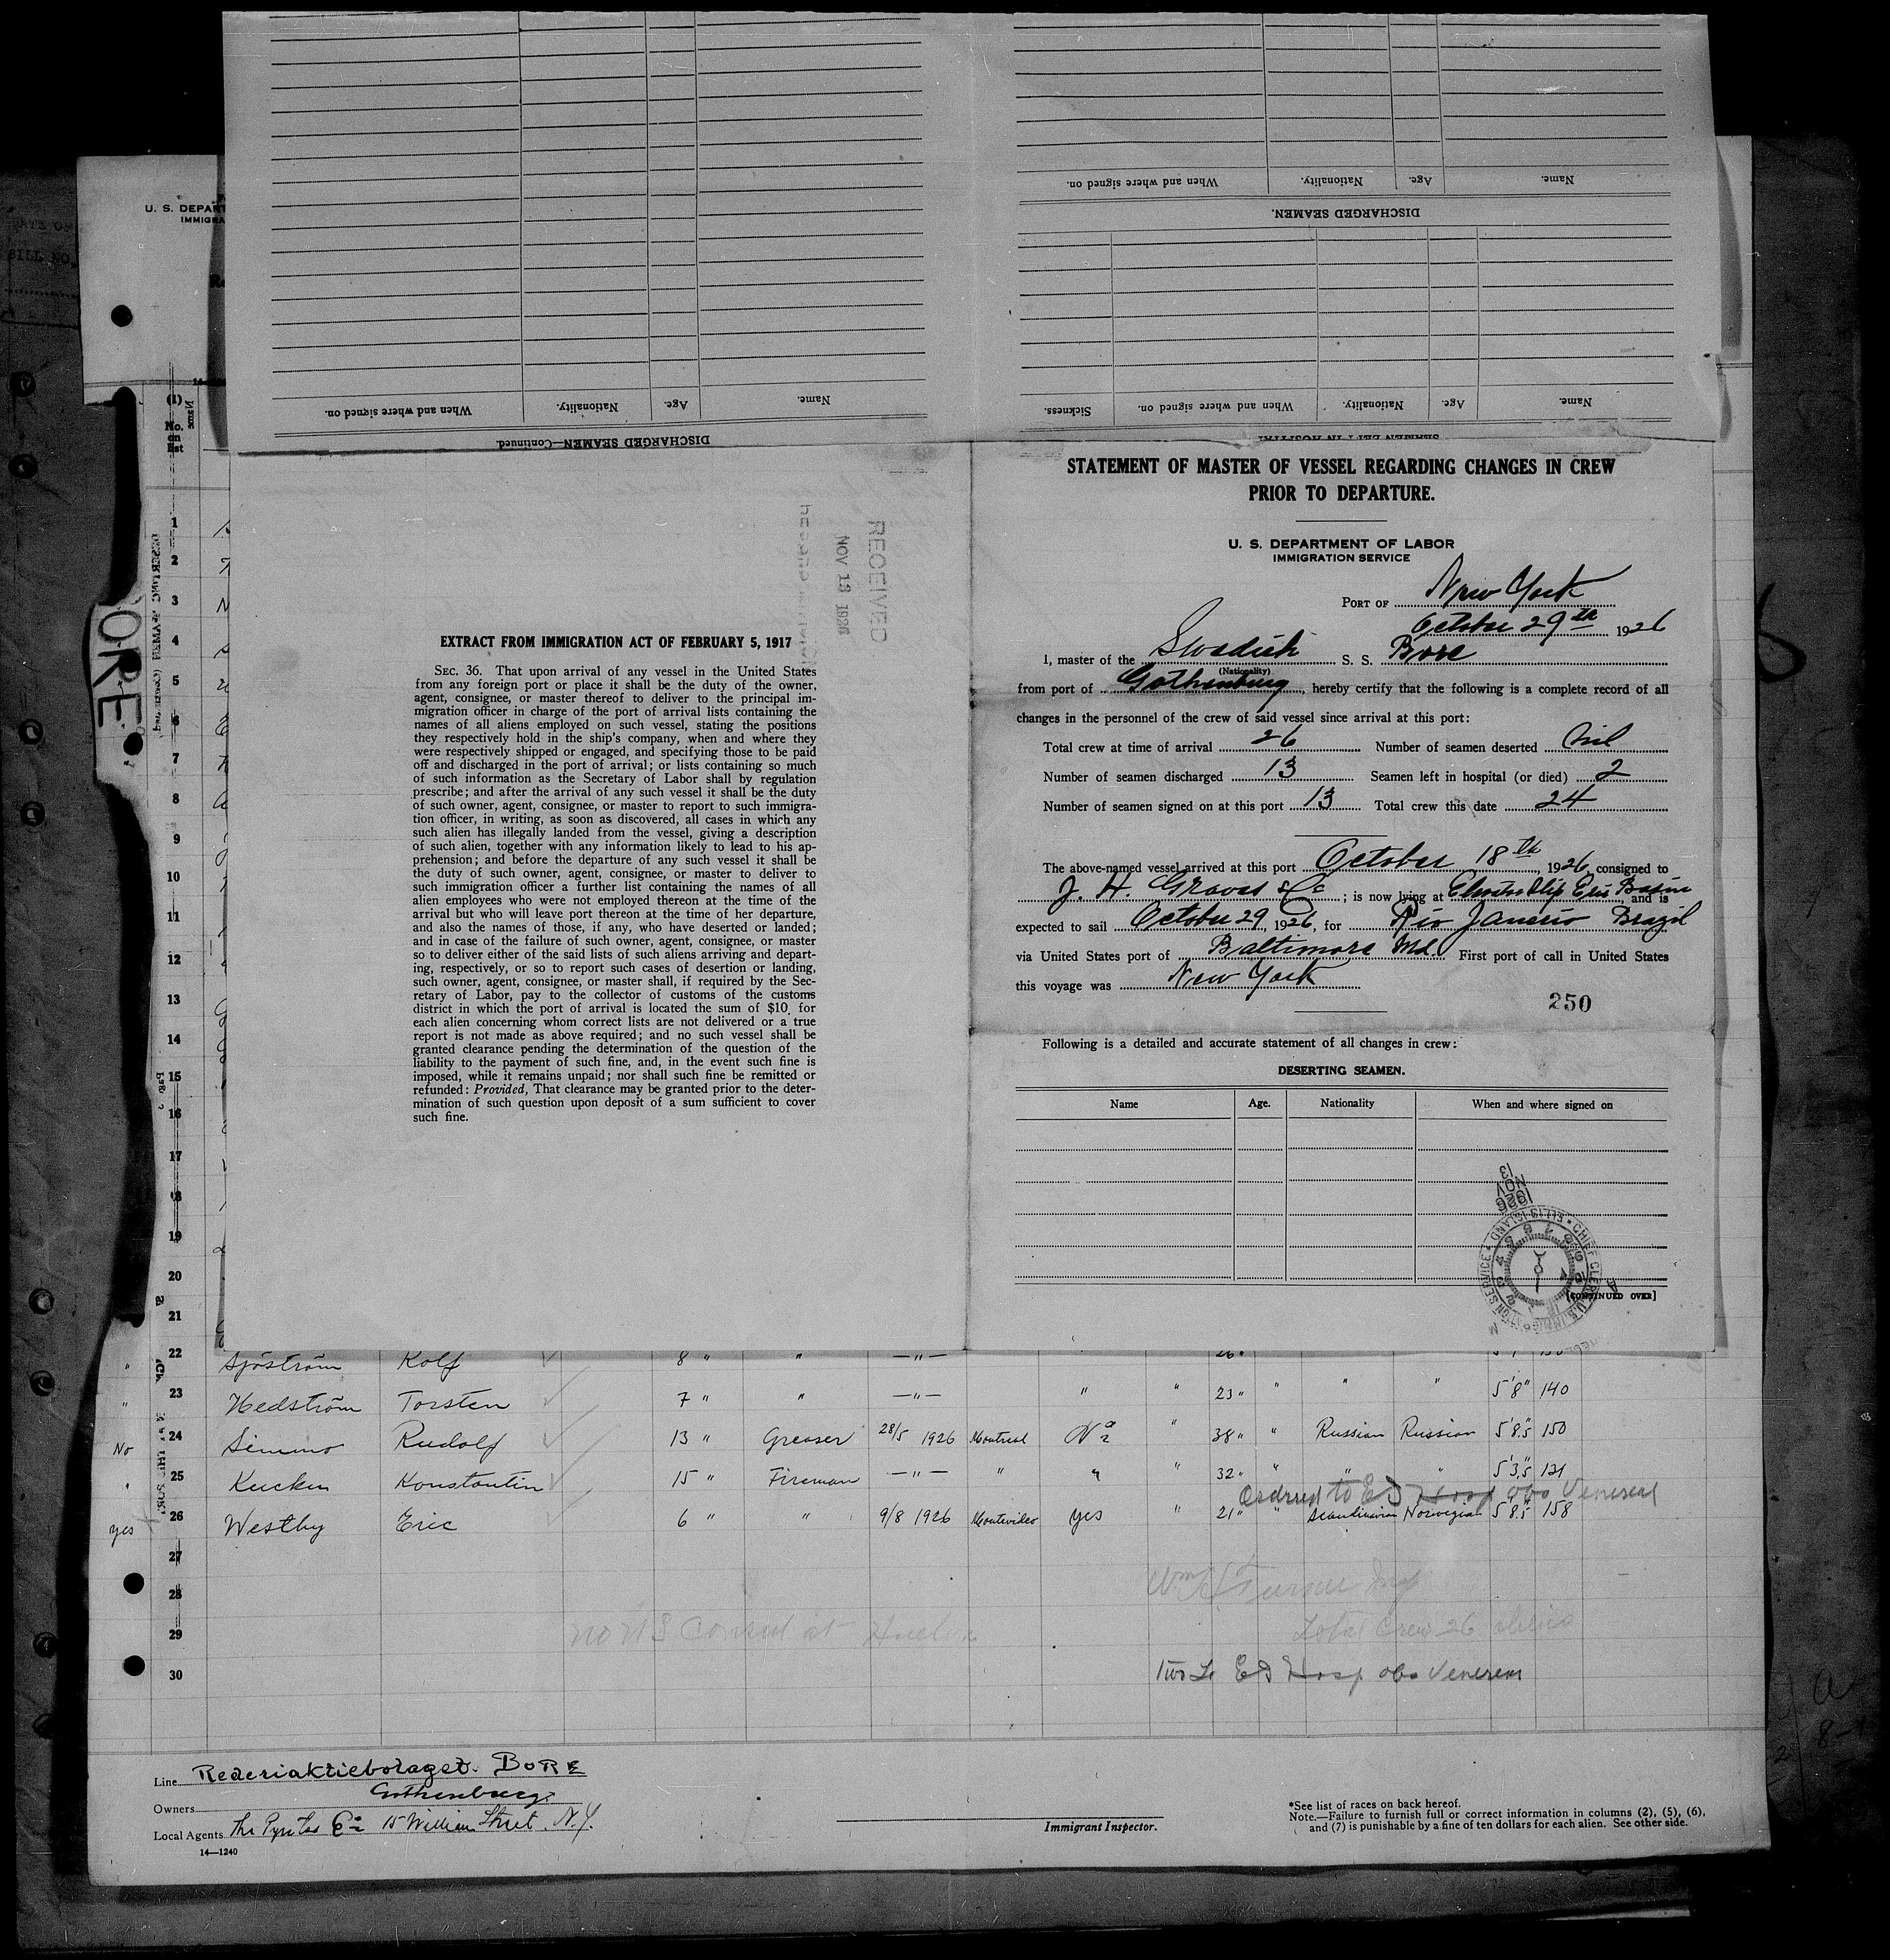 When and where signed on.
Nationality.
Age.
Name.
DISCHARGED SEAMEN.
Name.
Age.
Nationality.
When and where signed on.
Name.
Age.
Nationality.
When and where signed on.
Sickness.
DISCHARGED SEAMEN—Continued.
SEAMEN LEFT IN HOSPITAL
U. S. DEPART
IMMIGRA
(1)
No.
on
list
BORE
RECEIVED
NOV 13 1926
EXTRACT FROM IMMIGRATION ACT OF FEBRUARY 5, 1917
SEC. 36. That upon arrival of any vessel in the United States
from any foreign port or place it shall be the duty of the owner,
agent, consignee, or master thereof to deliver to the principal im-
migration officer in charge of the port of arrival lists containing the
names of all aliens employed on such vessel, stating the positions
they respectively hold in the ship's company, when and where they
were respectively shipped or engaged, and specifying those to be paid
off and discharged in the port of arrival; or lists containing so much
of such information as the Secretary of Labor shall by regulation
prescribe; and after the arrival of any such vessel it shall be the duty
of such owner, agent, consignee, or master to report to such immigra-
tion officer, in writing, as soon as discovered, all cases in which any
such alien has illegally landed from the vessel, giving a description
of such alien, together with any information likely to lead to his ap-
prehension; and before the departure of any such vessel it shall be
the duty of such owner, agent, consignee, or master to deliver to
such immigration officer a further list containing the names of all
alien employees who were not employed thereon at the time of the
arrival but who will leave port thereon at the time of her departure,
and also the names of those, if any, who have deserted or landed;
and in case of the failure of such owner, agent, consignee, or master
so to deliver either of the said lists of such aliens arriving and depart-
ing, respectively, or so to report such cases of desertion or landing,
such owner, agent, consignee, or master shall, if required by the Sec-
retary of Labor, pay to the collector of customs of the customs
district in which the port of arrival is located the sum of $10 for
each alien concerning whom correct lists are not delivered or a true
report is not made as above required; and no such vessel shall be
granted clearance pending the determination of the question of the
liability to the payment of such fine, and, in the event such fine is
imposed, while it remains unpaid; nor shall such fine be remitted or
refunded: Provided, That clearance may be granted prior to the deter-
mination of such question upon deposit of a sum sufficient to cover
such fine.
STATEMENT OF MASTER OF VESSEL REGARDING CHANGES IN CREW
PRIOR TO DEPARTURE.
U. S. DEPARTMENT OF LABOR
IMMIGRATION SERVICE
PORT OF New York
October 29th 1926
I, master of the Swedish S. S. Bore
(Nationality)
from port of Gothenburg, hereby certify that the following is a complete record of all
changes in the personnel of the crew of said vessel since arrival at this port:
Total crew at time of arrival 26 Number of seamen deserted Nil
Number of seamen discharged 13 Seamen left in hospital (or died) 2
Number of seamen signed on at this port 13 Total crew this date 24
The above-named vessel arrived at this port October 18th, 1926, consigned to
J. H. Graves & Co; is now lying at Slip Erie Basin and is
expected to sail October 29, 1926, for Rio Janerio Brazil
via United States port of Baltimore Md. First port of call in United States
this voyage was New York
250
Following is a detailed and accurate statement of all changes in crew:
DESERTING SEAMEN.
Name Age. Nationality When and where signed on
13
NOV
1926
CHIEF CLERK U.S. IMMIGRATION SERVICE ELLIS ISLAND
[CONTINUED OVER]
1
2
3
4
5
6
7
8
9
10
11
12
13
14
15
16
17
18
19
20
21
" 22 Sjöström Rolf 8 " " —"— 26 "
" 23 Hedström Torsten 7 " " —"— " " 23 " " " " 5'8" 140
No 24 Simmo Rudolf 13 " Greaser 28/5 1926 Montreal No " 38 " " Russian Russian 5'8.5 150
" 25 Kucken Konstantin 15 " Fireman —"— " " " 32 " " " " 5'3.5 121
Ordered to EI Hosp obs Venereal
yes 26 Westby Eric 6 " " 9/8 1926 Montevideo yes " 21 " " Scandinavian Norwegian 5'8.5" 158
27
28
29 no US Consul at Huelva Total Crew 26 aliens
30 Two to EI Hosp obs Venereal
Line Rederiaktiebolaget. BORE
Gothenburg.
Owners
Local Agents The Pyrites Co 15 William Street. N.Y.
14—1240
Immigrant Inspector.
*See list of races on back hereof.
Note.—Failure to furnish full or correct information in columns (2), (5), (6),
and (7) is punishable by a fine of ten dollars for each alien. See other side.